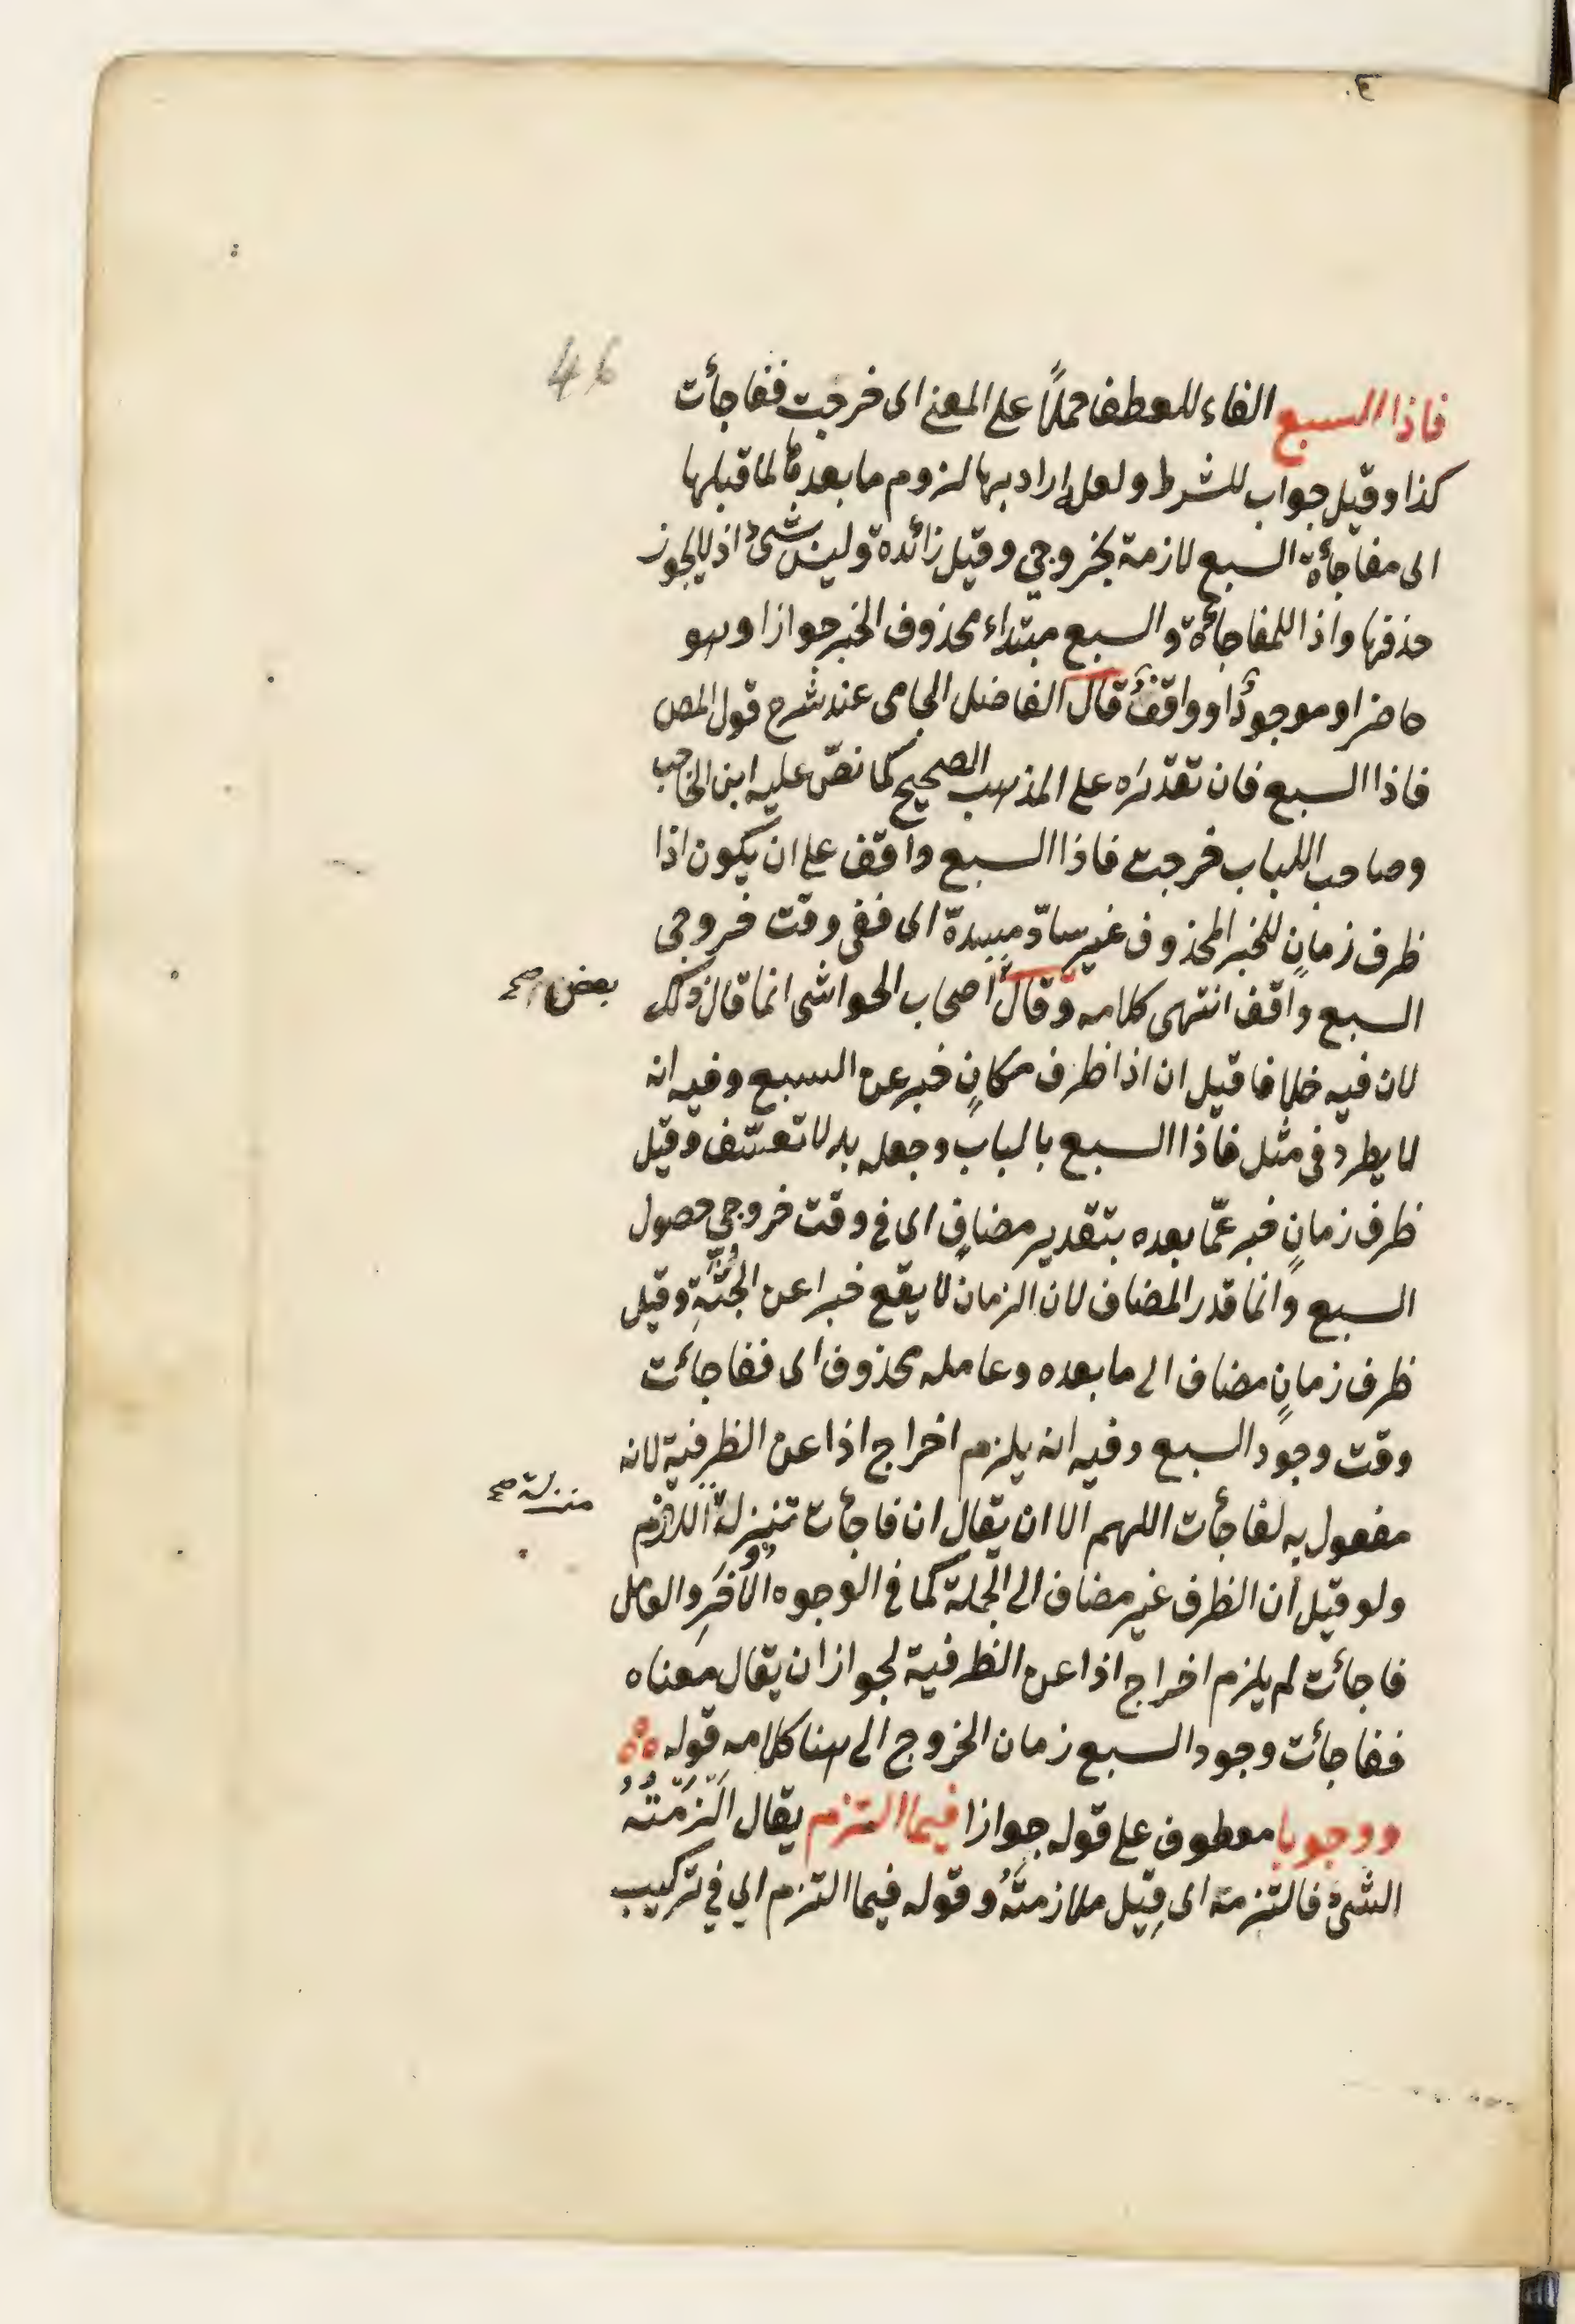 46
فاذا السبع الفاء للعطف حملاً على المعنى اى خرجت ففاجأت
كذا وقيل جواب للشرط ولعله اراد بها لزوم ما بعدها لما قبلها
اى مفاجأة السبع لازمة بخروجى وقيل زائدة وليس بشئ اذ لا يجوز
حذفها واذا للمفاجأة والسبع مبتداء محذوف الخبر جوازا وهو
حاضر او موجود او واقف قال الفاضل الجامى عند شرح قول المص
فاذا السبع فان تقديره على المذهب الصحيح كما نصّ عليه ابن الحاجب
وصاحب اللباب خرجت فاذا السبع واقف على ان يكون اذا
ظرف زمانٍ للخبر المحذوف غير سادّ مسده اى ففى وقت خروجى
السبع واقف انتهى كلامه وقال اصحاب الحواشى انما قال ذلك
بعض صح
لان فيه خلافا قيل ان اذا ظرف مكانٍ خبر عن السبع وفيه انه
لا يطرد فى مثل فاذا السبع بالباب وجعله بدلا تعسّف وقيل
ظرف زمانٍ خبر عمّا بعده بتقدير مضافٍ اى فى وقت خروجى حصول
السبع وانما قدر المضاف لان الزمان لا يقع خبرا عن الجُثّةِ وقيل
ظرف زمانٍ مضاف الى ما بعده وعامله محذوف اى ففاجأت
وقت وجود السبع وفيه انه يلزم اخراج اذا عن الظرفية لانه
مفعول به لفاجأت اللهم الا ان يقال ان فاجأت تنزلة اللازم
منزلة صح
ولو قيل ان الظرف غير مضاف الى الجملة كما فى الوجوه الاُخَرِ والعامل
فاجأت لم يلزم اخراج اذا عن الظرفية لجواز ان يقال معناه
ففاجأت وجود السبع زمان الخروج الى هنا كلامه قوله
ووجوبا معطوف على قوله جوازا فيما التزم يقال اَلْزَمْتُهُ
الشئ فالتزمه اى قَبِلَ ملازمتَهُ وقوله فيما التزم اى فى تركيب